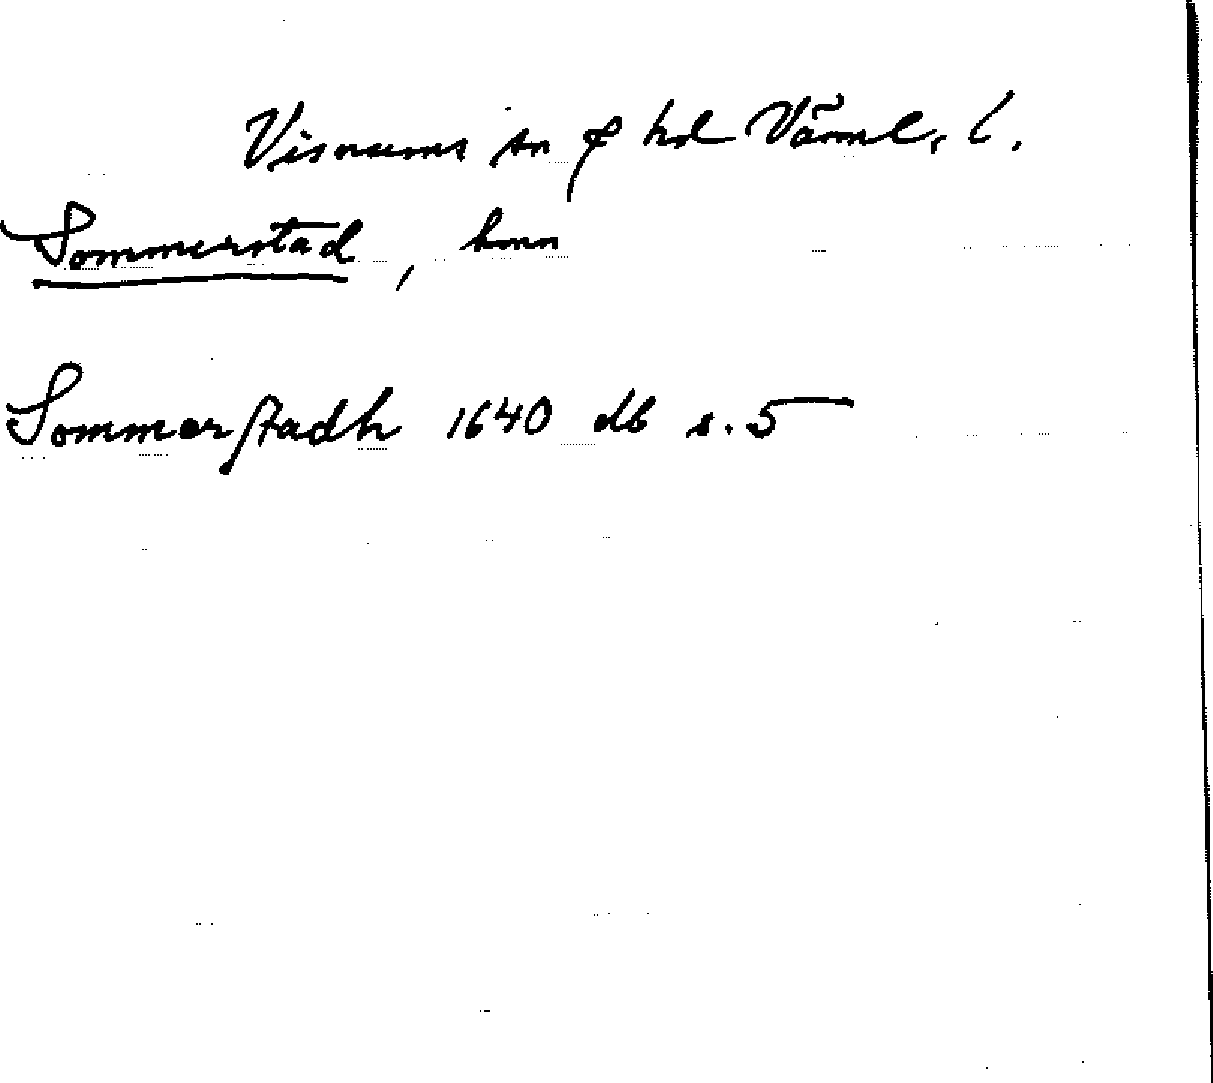 Visnums sn o hd Värml. l.
Sommerstad, hmn
Sommerstadh 1640 db s. 5